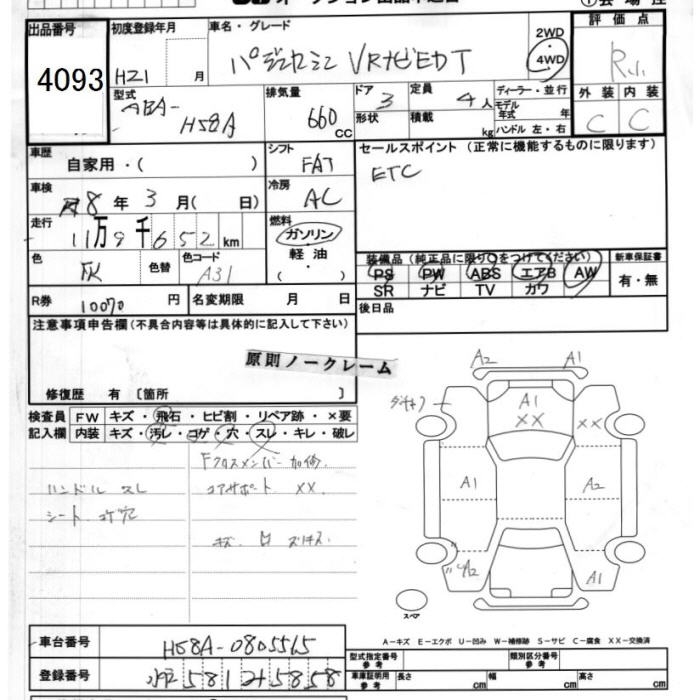 出品番号
4093
初度登録年月
H21 月
車名・グレード
パジェロミニ VRナビED T
2WD
4WD
評価点
R
型式
ABA-
H58A
排気量
660
CC
ドア
3
形状
定員
4人
積載
kg
ディーラー・並行
モデル年式 年
ハンドル 左・右
外装 内装
C C
車歴
自家用・( )
シフト
FAT
セールスポイント (正常に機能するものに限ります)
ETC
車検
8年3月( 日)
冷房
AC
走行
11万9千652km
燃料
ガソリン
軽油
・( )
色
色替
色コード
A31
装備品(純正品に限り○をつけてください)
PS PW ABS エアB AW
SR ナビ TV カワ
新車保証書
有・無
R券
10070円
名変期限 月 日
後日品
注意事項申告欄(不具合内容等は具体的に記入して下さい)
原則ノークレーム
修復歴 有 〔箇所 〕
検査員
記入欄
FW キズ・飛石・ヒビ割・リペア跡・×要
内装 キズ・汚レ・コゲ・穴・スレ・キレ・破レ
Fクロスメンバー 加修.
ハンドル スレ
コアサポート XX.
シート. コゲ穴
A2
A1
A1
XX
XX
A1
A2
A2
A1
スペア
A-キズ E-エクボ U-凹み W-補修跡 S-サビ C-腐食 XX-交換済
車台番号
H58A-0805515
登録番号
581
5858
型式指定番号
参考
類別区分番号
参考
車庫証明用
参考
長さ cm
幅 cm
高さ cm